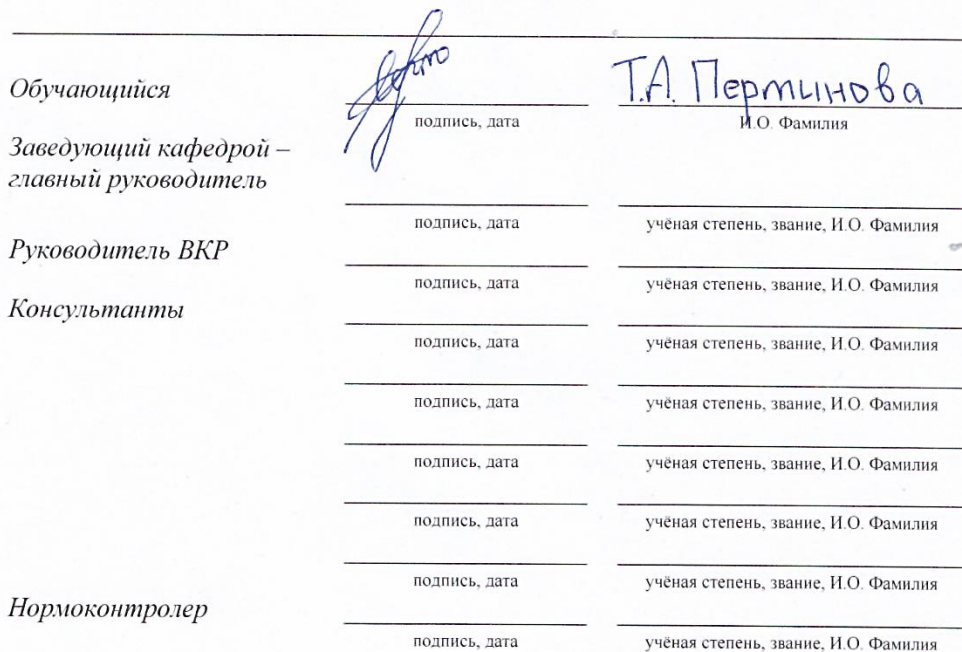 Обучающийся
Т.А. Перминова
подпись, дата И.О. Фамилия
Заведующий кафедрой –
главный руководитель
подпись, дата учёная степень, звание, И.О. Фамилия
Руководитель ВКР
подпись, дата учёная степень, звание, И.О. Фамилия
Консультанты
подпись, дата учёная степень, звание, И.О. Фамилия
подпись, дата учёная степень, звание, И.О. Фамилия
подпись, дата учёная степень, звание, И.О. Фамилия
подпись, дата учёная степень, звание, И.О. Фамилия
подпись, дата учёная степень, звание, И.О. Фамилия
Нормоконтролер
подпись, дата учёная степень, звание, И.О. Фамилия